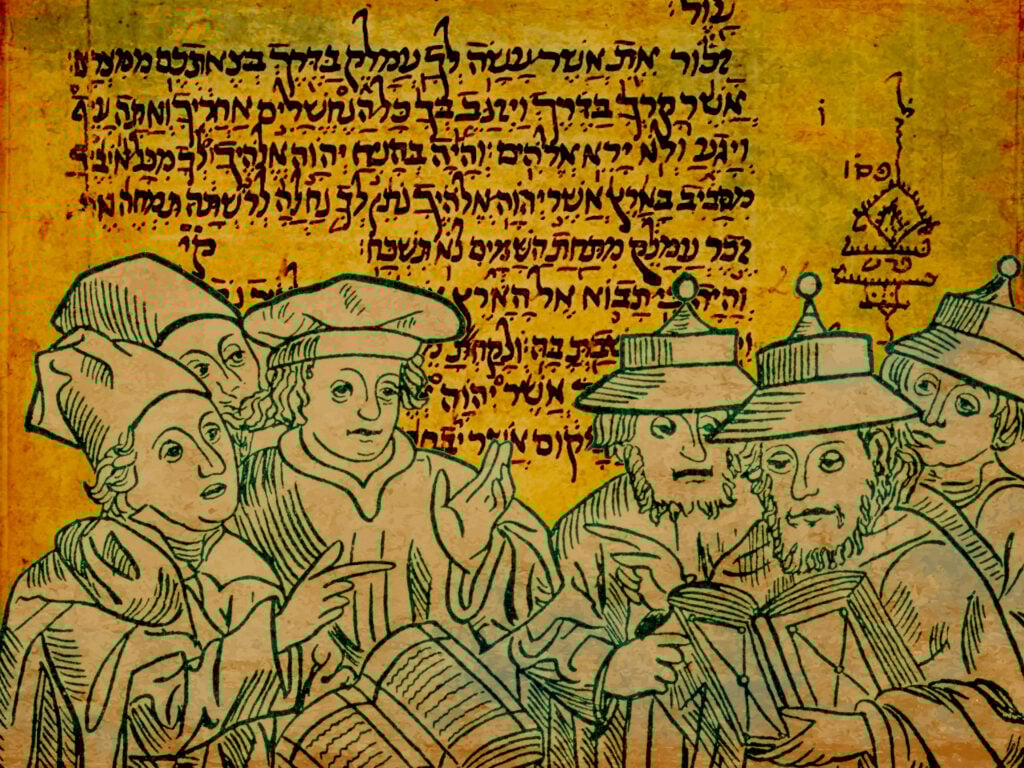 עול:
זכור את אשר עשה לך עמלק בדרך בצאתכם ממצרים
אשר קרך בדרך ויזנב בך כל הנחשלים אחריך ואתה עיף
ויגע ולא ירא אלהים והיה בהניח יהוה אלהיך לך מכל איביך
מסביב בארץ אשר יהוה אלהיך נתן לך נחלה לרשתה תמחה את
זכר עמלק מתחת השמים לא תשכח:
והיה כי תבוא אל הארץ
בה ולקחת
אשר יהוה
אשר